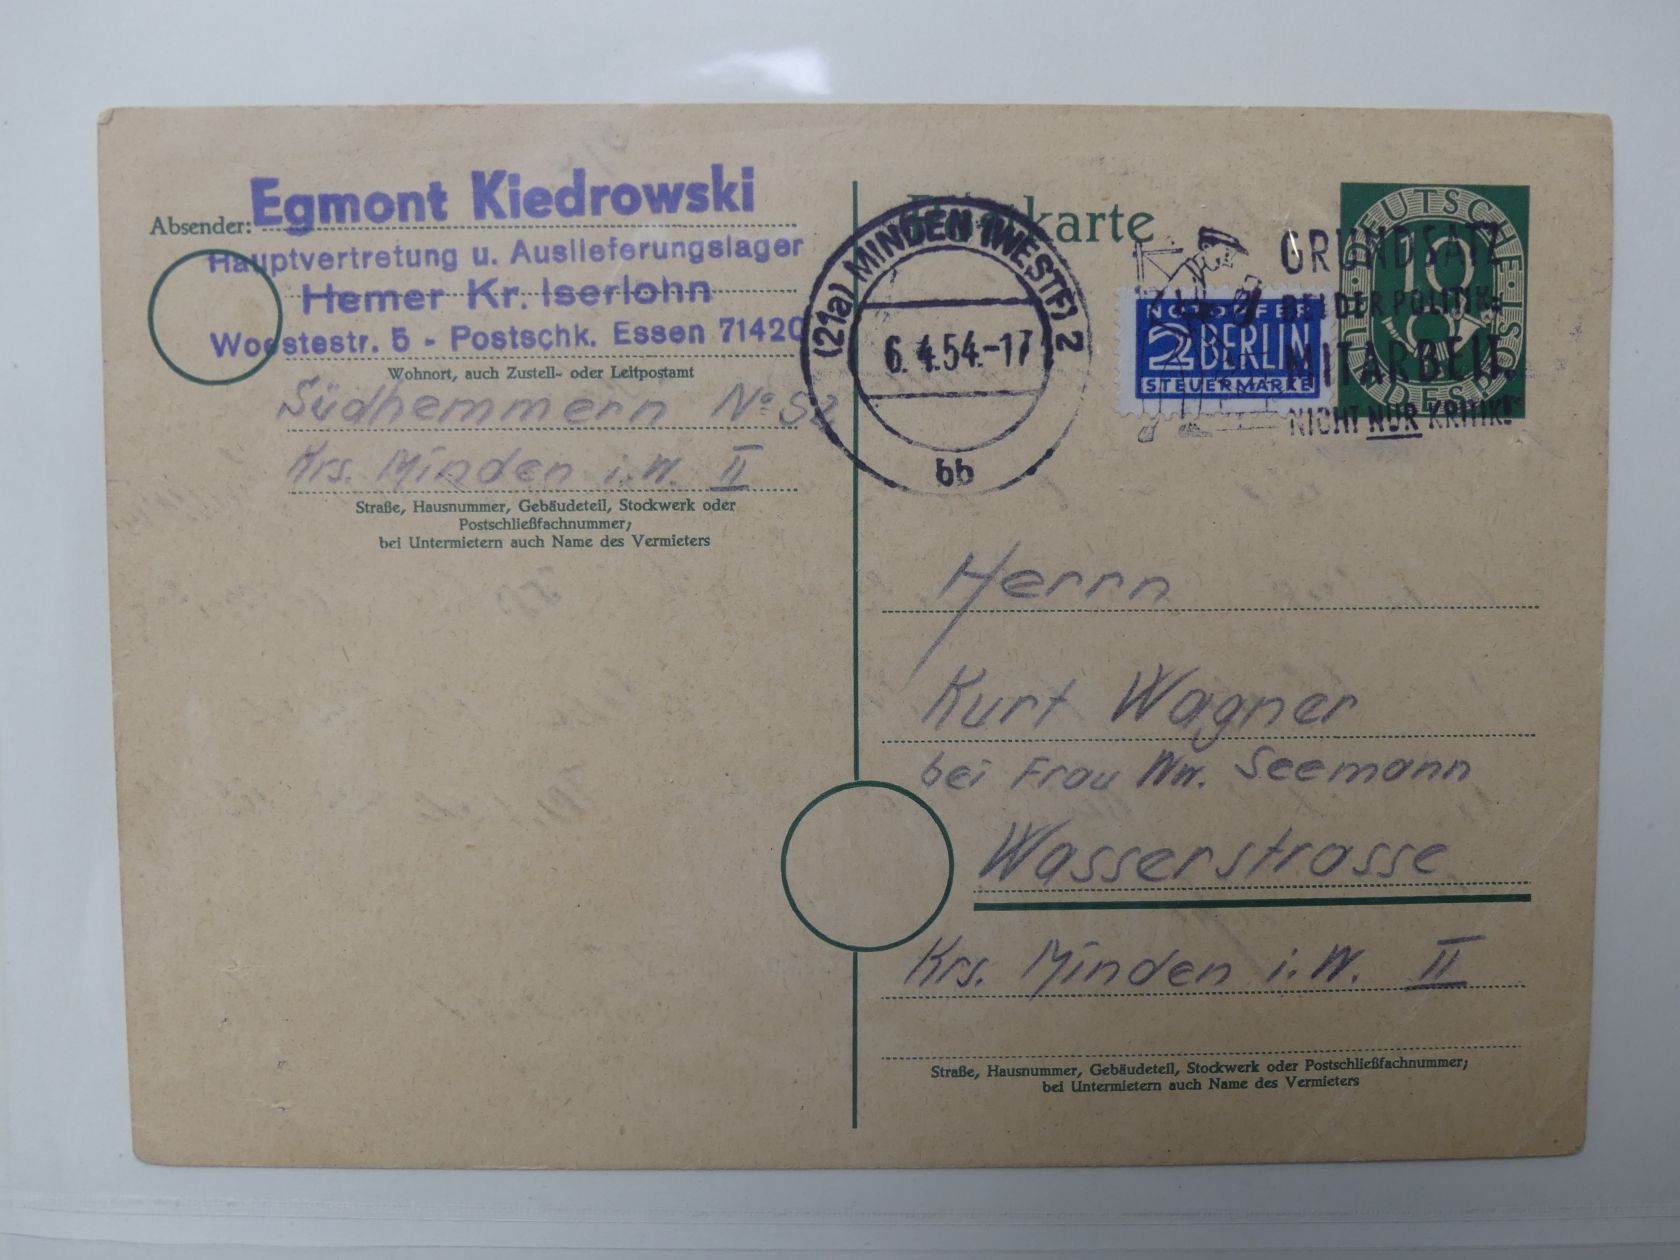 Absender: Egmont Kiedrowski
Hauptvertretung u. Auslieferungslager
Hemer Kr. Iserlohn
Woestestr. 5 - Postschk. Essen 71420
Wohnort, auch Zustell- oder Leitpostamt
Südhemmern No 52
Krs. Minden i.W. II
Straße, Hausnummer, Gebäudeteil, Stockwerk oder
Postschließfachnummer;
bei Untermietern auch Name des Vermieters
Postkarte
(21a) MINDEN (WESTF) 2
6.4.54.-17
bb
NOTOPFER
2 BERLIN
STEUERMARKE
GRUNDSATZ
BEI DER POLITIK:
MITARBEIT,
NICHT NUR KRITIK!
DEUTSCHE
10
Herrn
Kurt Wagner
bei Frau Ww. Seemann
Wasserstrasse
Krs. Minden i.W. II
Straße, Hausnummer, Gebäudeteil, Stockwerk oder Postschließfachnummer;
bei Untermietern auch Name des Vermieters